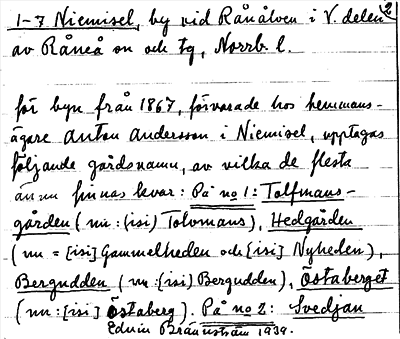 1-7 Niemisel, by vid Råneälven i V. delen 2
av Råneå sn och tg, Norrb l.
för byn från 1867, förvarade hos hemmans-
ägare Anton Andersson i Niemisel, upptagas
följande gårdsnamn, av vilka de flesta
ännu finnas kvar: På no 1: Tolfmans-
gården (nu: [isi] Tolvmans), Hedgården
(nu = [isi] Gammelheden och [isi] Nyheden),
Bergudden (nu: [isi] Bergudden), Östaberget
(nu: [isi] Östaberg). På no 2: Svedjan
Edvin Brännström 1939.